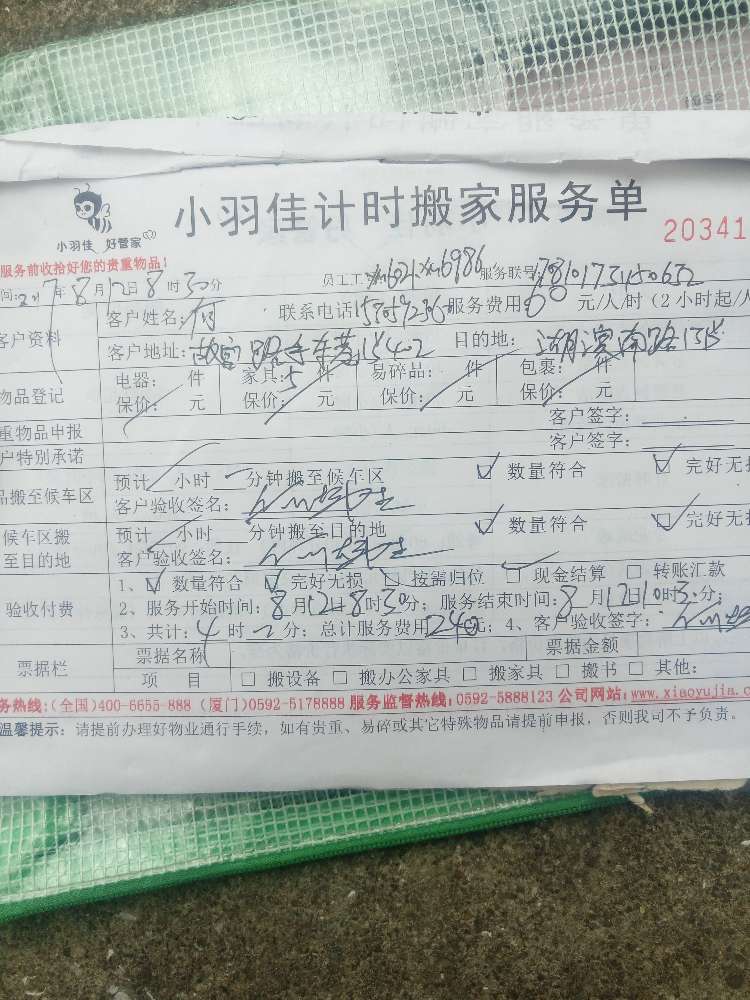 小羽佳计时搬家服务单
小羽佳 好管家
20341
服务前收拾好您的贵重物品!
年8月12日8时30分 员工工 服务联号
客户姓名:付 联系电话 服务费用:60元/人/时(2小时起/人
客户资料 客户地址: 目的地:湖滨南路
电器: 件 家具:5件 易碎品: 件 包裹: 件
物品登记 保价: 元 保价: 元 保价: 元 保价: 元
重物品申报 客户签字:
户特别承诺 客户签字:
品搬至候车区 预计 小时 分钟搬至候车区 ☑ 数量符合 ☑ 完好无损
客户验收签名:
候车区搬至目的地 预计 小时 分钟搬至目的地 ☑ 数量符合 ☑ 完好无损
客户验收签名:
1、☑ 数量符合 ☑ 完好无损 □ 按需归位 ☑ 现金结算 □ 转账汇款
验收付费 2、服务开始时间:8月12日8时30分;服务结束时间:8月12日10时30分;
3、共计:4时 分;总计服务费用240元;4、客户验收签字:
票据栏 票据名称 票据金额
项 目 □ 搬设备 □ 搬办公家具 □ 搬家具 □ 搬书 □ 其他:
务热线:(全国)400-6655-888 (厦门)0592-5178888 服务监督热线:0592-5888123 公司网站:www.xiaoyujia.c
温馨提示:请提前办理好物业通行手续,如有贵重、易碎或其它特殊物品请提前申报,否则我司不予负责。